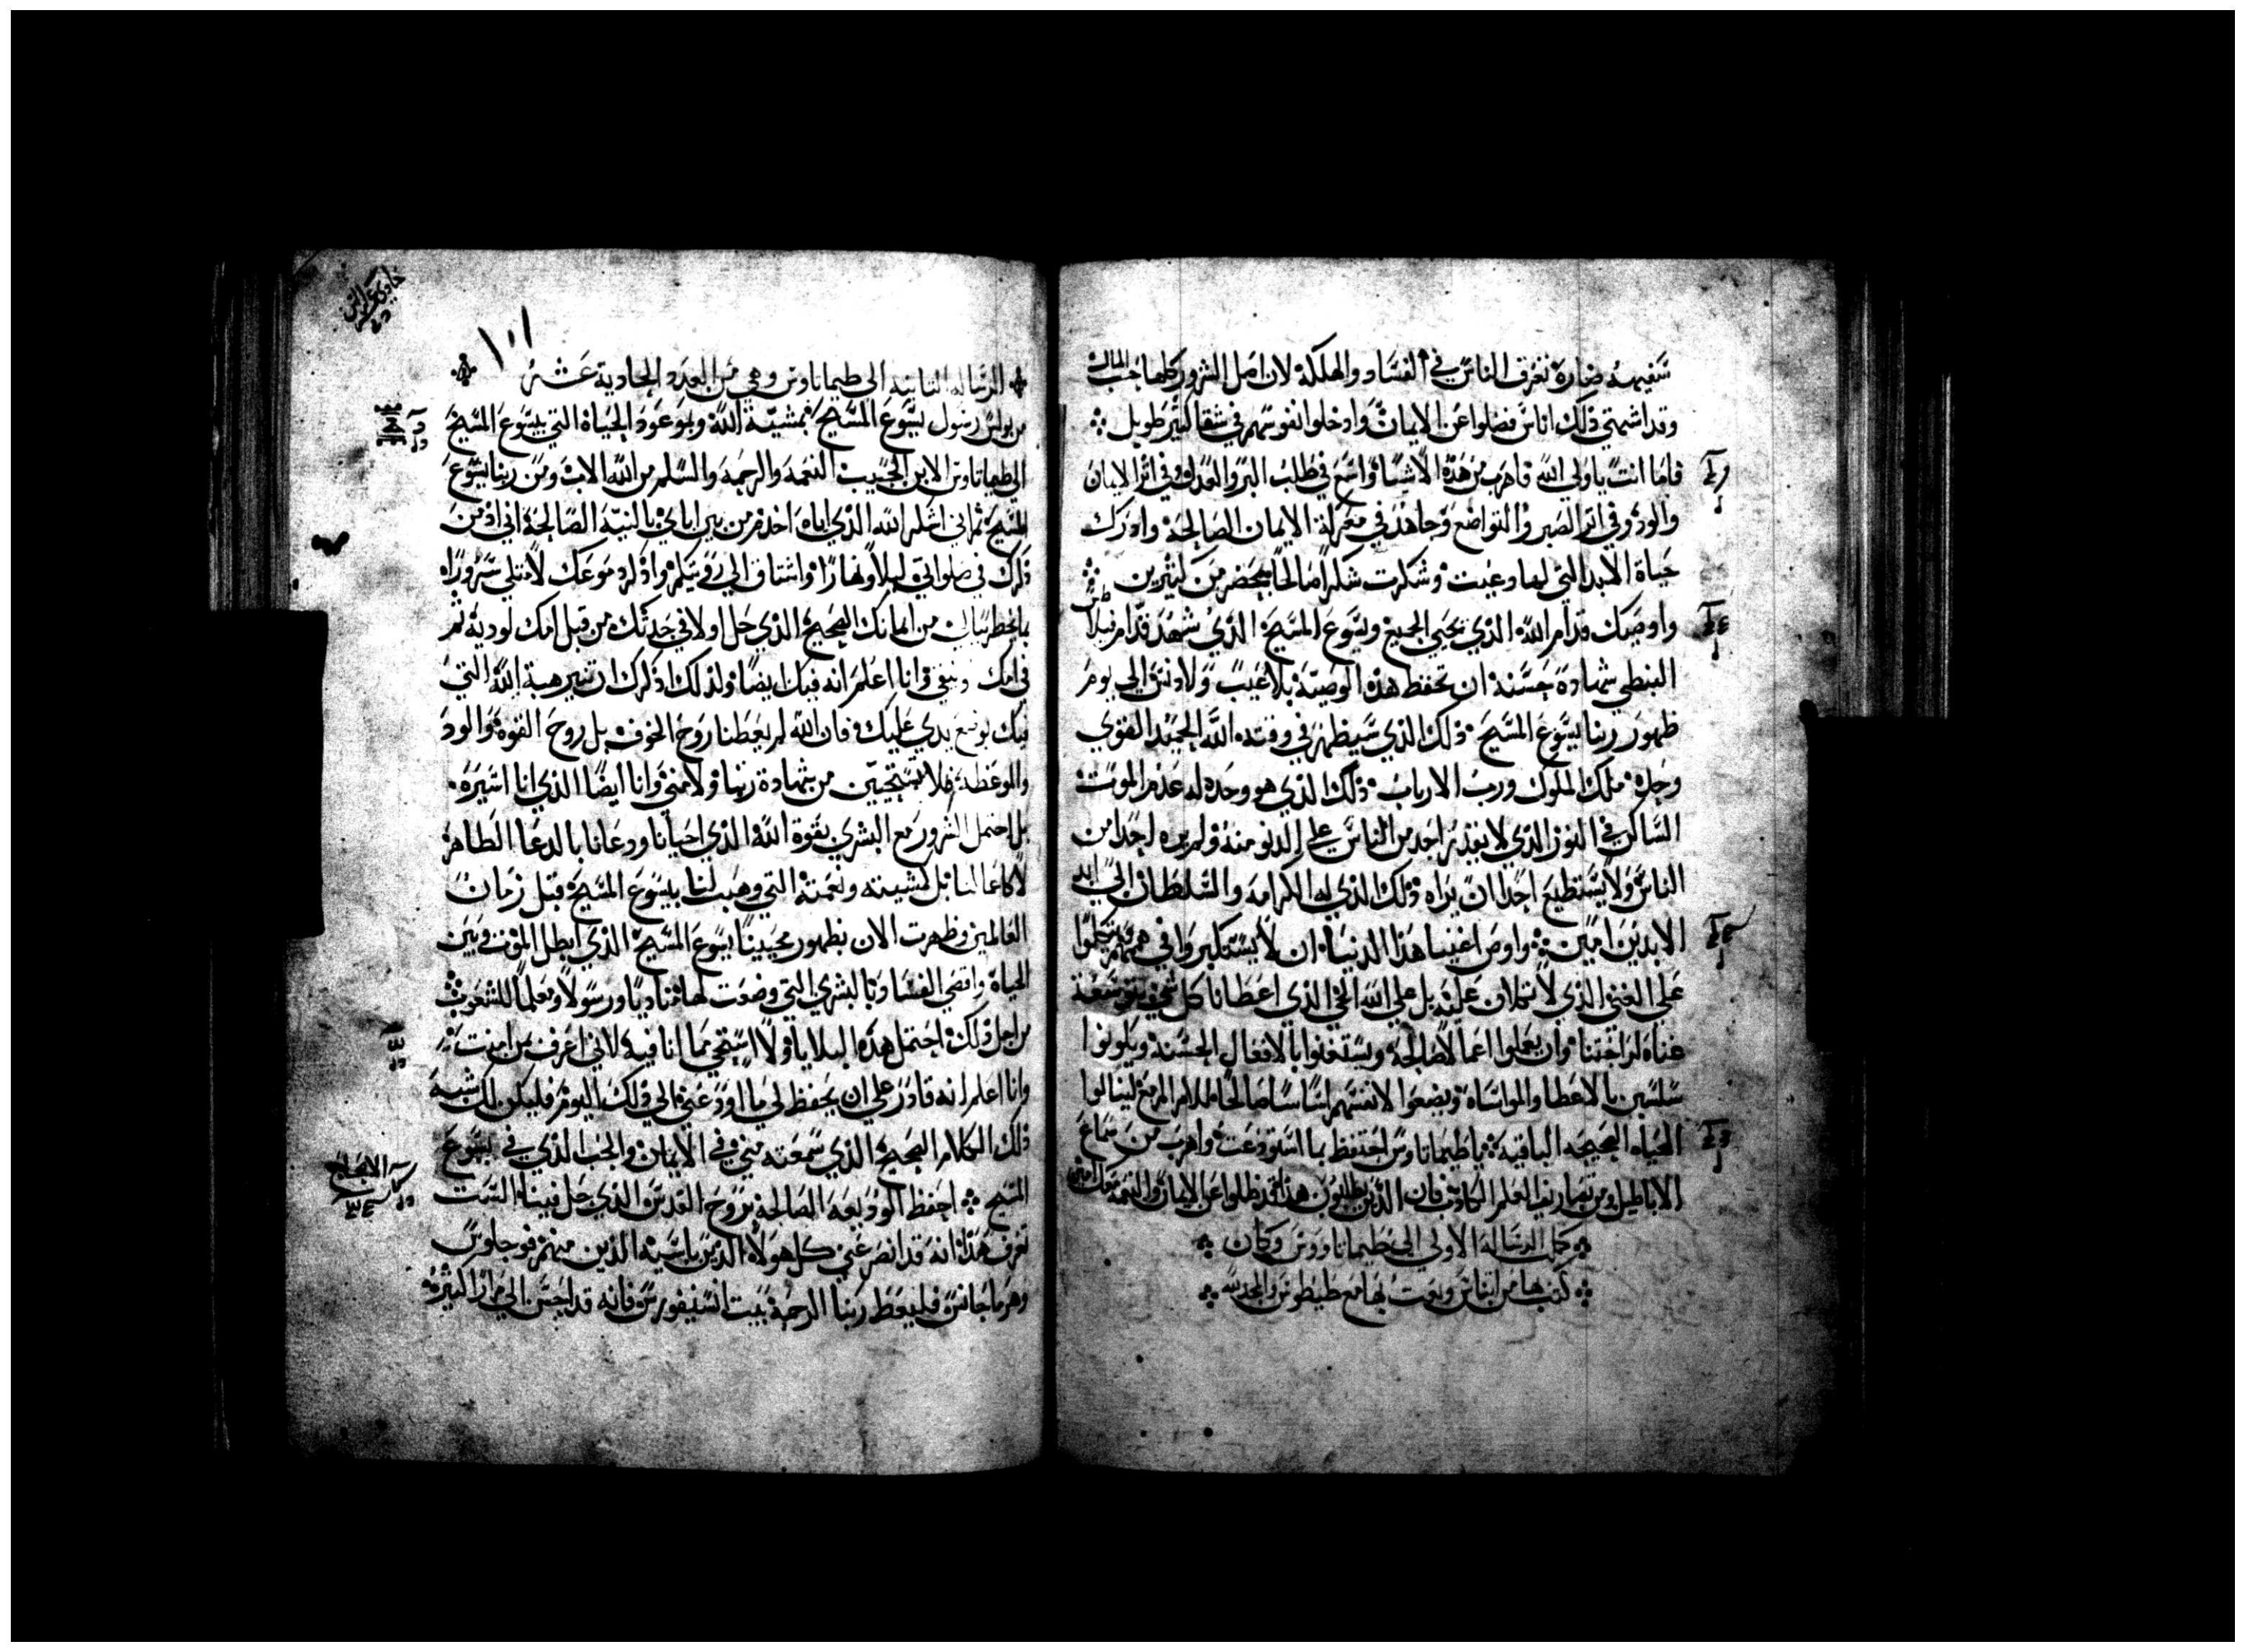 سفيهه ضاره تغرق الناس في الفساد والهلكة لان اصل الشرور كلها حب المال
وقد اشتهي ذلك اناس فضلوا عن الايمان وادخلوا نفوسهم في شقا كثير طويل
فاما انت يا ولي الله فاهرب من هذه الاشيا واسع في طلب البر والعدل وفي اثر الايمان
والود وفي اثر الصبر والتواضع وجاهد في معركة الايمان الصالحة وادرك
حياة الابد التي لها دعيت وشكرت شكرا صالحا بمحضر من كثيرين
واوصيك قدام الله الذي يحيي الجميع ويسوع المسيح الذي شهد قدام فيلاطس
البنطي شهادة حسنة ان تحفظ هذه الوصية بلا عيب ولا دنس الي يوم
ظهور ربنا يسوع المسيح ذلك الذي سيظهره في وقته الله الحميد القوي
وحده ملك الملوك ورب الارباب ذلك الذي هو وحده له عدم الموت
الساكن في النور الذي لا يقدر احد من الناس علي الدنو منه ولم يره احدا من
الناس ولا يستطيع احدا ان يراه ذلك الذي له الكرامه والسلطان الي ابد
الابدين امين واوص اغنيا هذا الدنيا ان لا يستكبروا في هممهم ولا يتكلوا
علي الغني الذي لا تكلان عليه بل علي الله الحي الذي اعطانا كل شي بتوسعة
غناه لراحتنا وان يعملوا اعمالا صالحة ويستغنوا بالافعال الحسنة ويكونوا
سلسين بالاعطا والمواساة ويضعوا لانفسهم اساسا صالحا للامر المزمع لينالوا
الحياه الصحيحه الباقيه يا طيماناوس احتفظ بما استودعت واهرب من سماع
الاباطيل ومن تصاريف العلم الكاذب فان الذين يطلبون هذا قد ظلوا عن الايمان والنعمة معك امين
كملت الرسالة الاولي الي طيماناووس وكان
كتبها من اثناس وبعث بها مع طيطوس والحمد لله
١٠١
الرساله الثانيه الي طيماناوس وهي من العدد الحادية عشر
من بولس رسول يسوع المسيح بمشية الله وبموعود الحياة التي بيسوع المسيح
الي طيماتاوس الابن الحبيب النعمه والرحمه والسلم من الله الاب ومن ربنا يسوع
المسيح ثم اني اشكر الله الذي اياه اخدم من بين ابايي بالنية الصالحة اني ادمن
ذكرك في صلواتي ليلا ونهارا واشتاق الي رويتكم واذكر دموعك لامتلي سرورا
بما يخطر ببالي من ايمانك الصحيح الذي حل اولا في جدتك من قبل امك لودية ثم
في امك ونيقي وانا اعلم انه فيك ايضا ولذلك اذكرك ان تثير هبة الله التي
فيك بوضع يدي عليك فان الله لم يعطنا روح الخوف بل روح القوة والود
والموعظة فلا تستحيين من شهادة ربنا ولا مني وانا ايضا الذي انا اسيره
بل احتمل الشرور مع البشري بقوة الله الذي احيانا ودعانا بالدعا الطاهر
لا كاعمالنا بل كمشيته ونعمته التي وهبت لنا بيسوع المسيح قبل زمان
العالمين وظهرت الان بظهور محيينا يسوع المسيح الذي ابطل الموت وبين
الحياة وافصي الفساد بالبشري التي وضعت لها مناديا ورسولا ومعلما للشعوب
من اجل ذلك احتمل هذه البلايا ولا استحي مما انا فيه لاني اعرف بمن امنت
وانا اعلم انه قادر علي ان يحفظ لي ما اودعني الي ذلك اليوم فليكن لك شبه
ذلك الكلام الصحيح الذي سمعته مني وفي الايمان والحب الذي في يسوع
المسيح احفظ الوديعه الصالحة بروح القدس الذي حل فينا الست
تعرف هذا انه قد انصرف عني كل هولاء الذين باسية الذين منهم فوجلوس
وهرماجانس فليعط ربنا الرحمة بيت انسيفورس فانه قد احسن الي مرارا كثيرة